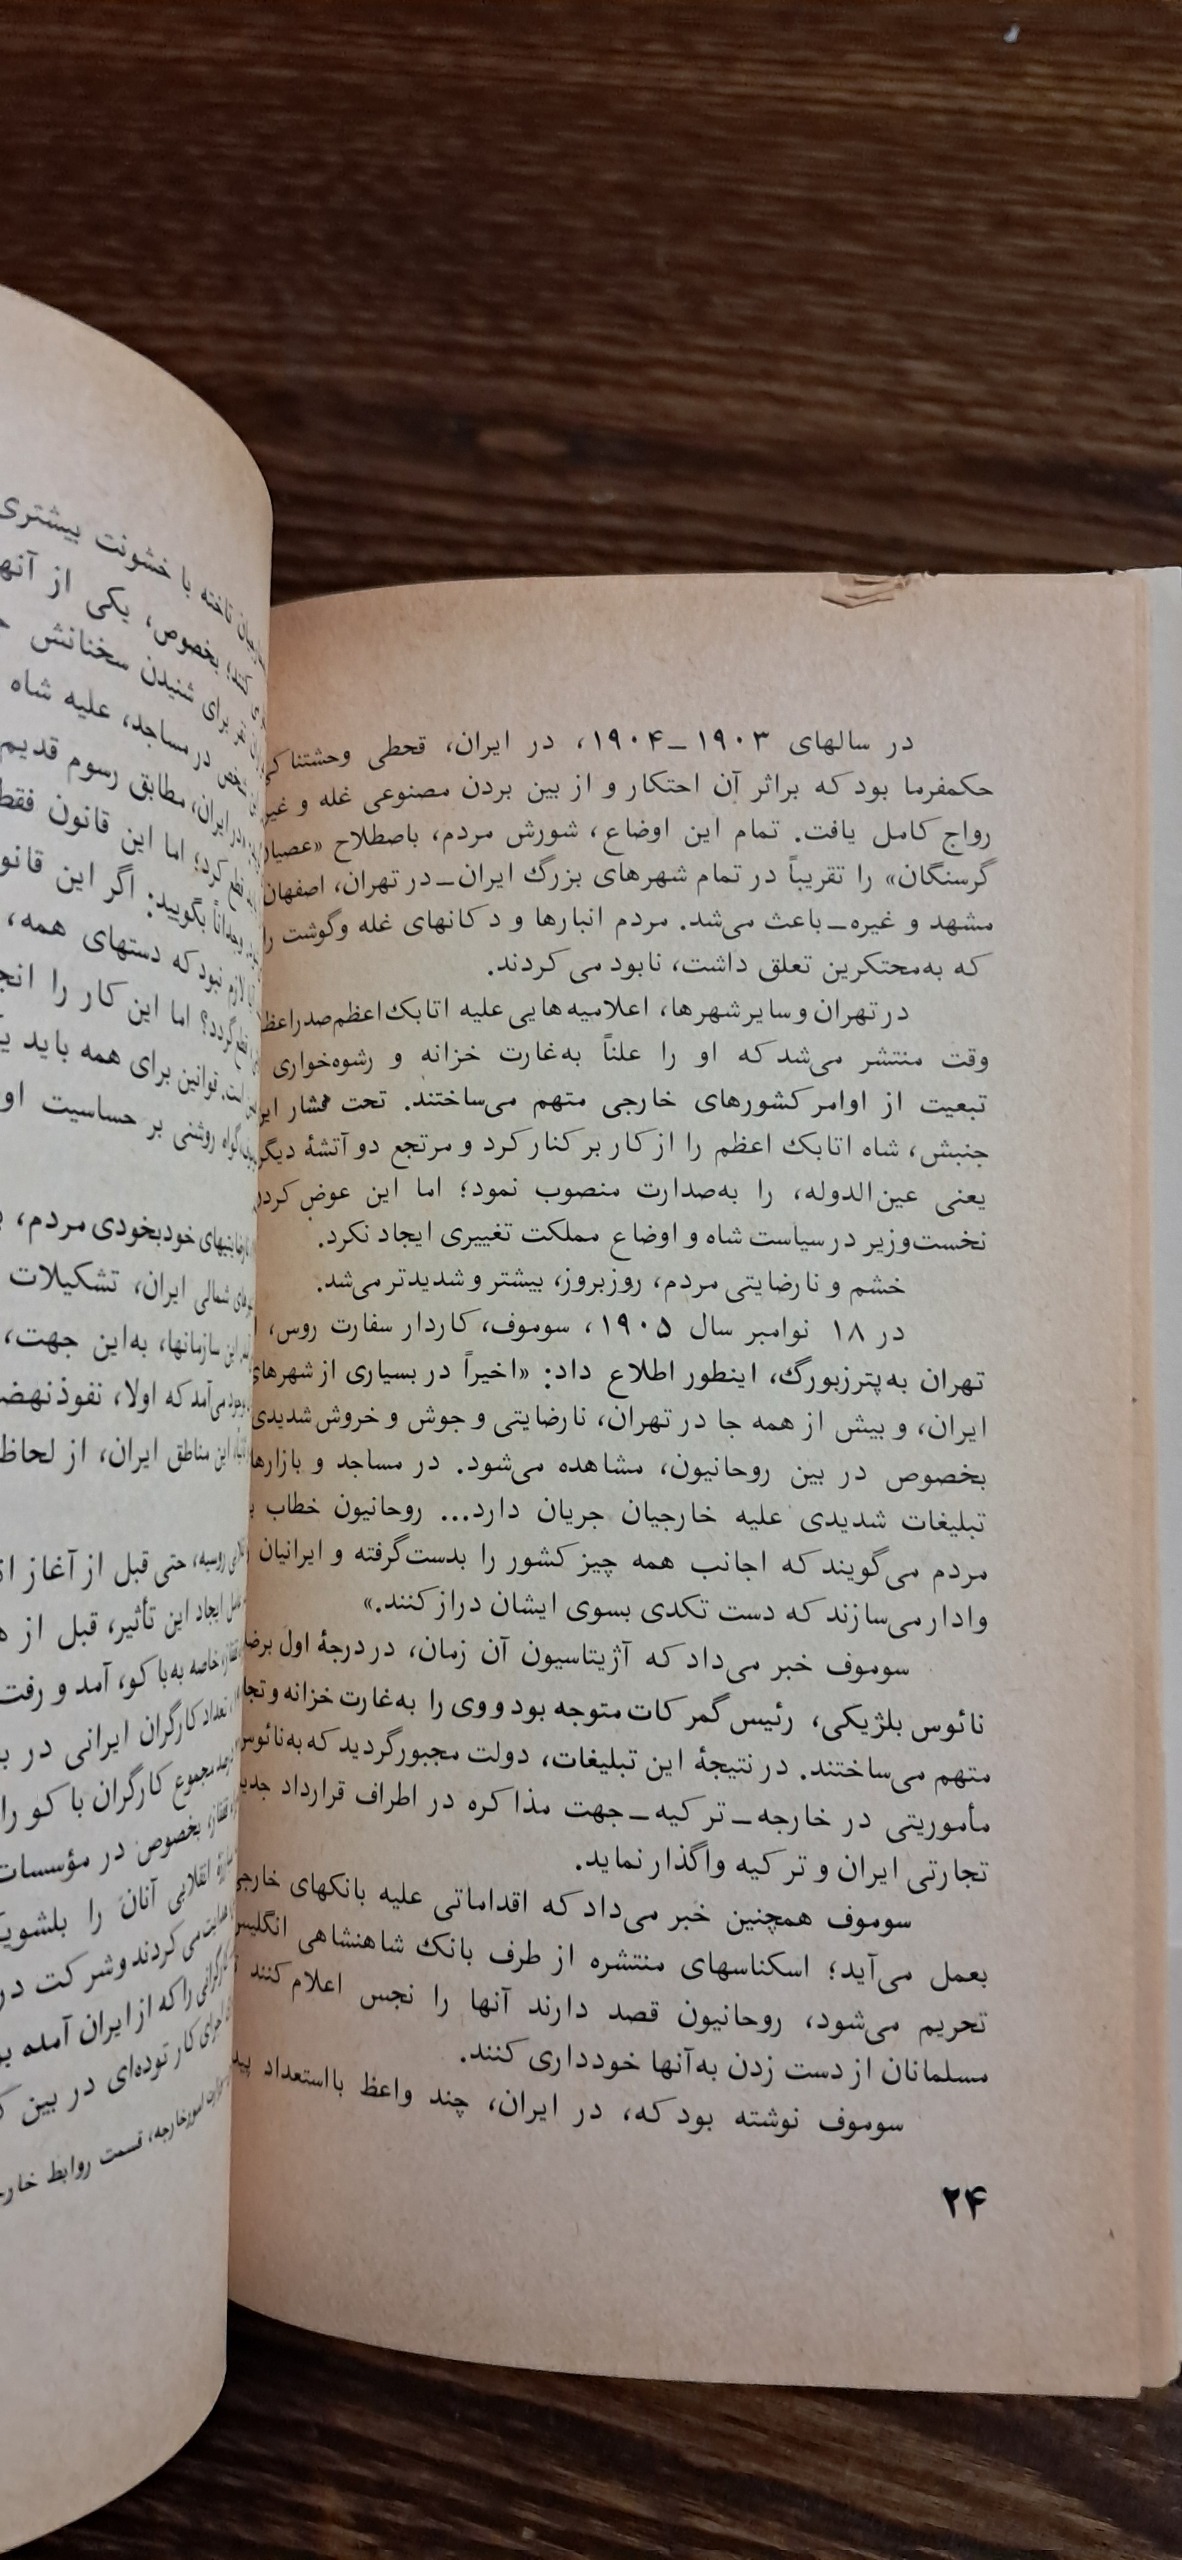 در سالهای ۱۹۰۳ـ۱۹۰۴، در ایران، قحطی وحشتناکی
حکمفرما بود که براثر آن احتکار و از بین بردن مصنوعی غله و
رواج کامل یافت. تمام این اوضاع، شورش مردم، باصطلاح «عصیان
گرسنگان» را تقریباً در تمام شهرهای بزرگ ایران ـ در تهران، اصفهان
مشهد و غیره ـ باعث می‌شد. مردم انبارها و دکانهای غله و گوشت را
که به‌محتکرین تعلق داشت، نابود می‌کردند.
در تهران و سایر شهرها، اعلامیه‌هایی علیه اتابک اعظم صدراعظم
وقت منتشر می‌شد که او را علناً به‌غارت خزانه و رشوه‌خواری
تبعیت از اوامر کشورهای خارجی متهم می‌ساختند. تحت فشار
جنبش، شاه اتابک اعظم را از کار برکنار کرد و مرتجع دوآتشهٔ دیگر
یعنی عین‌الدوله، را به‌صدارت منصوب نمود؛ اما این عوض کردن
نخست‌وزیر در سیاست شاه و اوضاع مملکت تغییری ایجاد نکرد.
خشم و نارضایتی مردم، روزبروز، بیشتر و شدیدتر می‌شد.
در ۱۸ نوامبر سال ۱۹۰۵، سوموف، کاردار سفارت روس،
تهران به‌پترزبورگ، اینطور اطلاع داد: «اخیراً در بسیاری از شهرهای
ایران، و بیش از همه جا در تهران، نارضایتی و جوش و خروش شدیدی
بخصوص در بین روحانیون، مشاهده می‌شود. در مساجد و بازارها
تبلیغات شدیدی علیه خارجیان جریان دارد... روحانیون خطاب
مردم می‌گویند که اجانب همه چیز کشور را بدست گرفته و ایرانیان
وادار می‌سازند که دست تکدی بسوی ایشان دراز کنند.»
سوموف خبر می‌داد که آژیتاسیون آن زمان، در درجهٔ اول
نائوس بلژیکی، رئیس گمرکات متوجه بود و وی را به‌غارت خزانه و
متهم می‌ساختند. در نتیجهٔ این تبلیغات، دولت مجبور گردید که به‌نائوس
مأموریتی در خارجه ـ ترکیه ـ جهت مذاکره در اطراف قرارداد جدید
تجارتی ایران و ترکیه واگذار نماید.
سوموف همچنین خبر می‌داد که اقداماتی علیه بانکهای خارجی
بعمل می‌آید؛ اسکناسهای منتشره از طرف بانک شاهنشاهی انگلیس
تحریم می‌شود، روحانیون قصد دارند آنها را نجس اعلام کنند
مسلمانان از دست زدن به‌آنها خودداری کنند.
سوموف نوشته بود که، در ایران، چند واعظ بااستعداد
۲۴
تاخته با خشونت بیشتری
بخصوص، یکی از
برای شنیدن سخنانش
در مساجد، علیه شاه
در ایران، مطابق رسوم قدیم
کرد؛ اما این قانون فقط
بگویید: اگر این
لازم نبود که دستهای همه،
اما این کار را
است. قوانین برای همه باید
گواه روشنی بر حساسیت
خودبخودی مردم،
شمالی ایران، تشکیلات
این سازمانها، به‌این جهت،
می‌آمد که اولا، نفوذ
این مناطق ایران، از لحاظ
روسیه، حتی قبل از آغاز
ایجاد این تأثیر، قبل از
خاصه به‌باکو، آمد و رفت
تعداد کارگران ایرانی در
مجموع کارگران باکو را
بخصوص در مؤسسات
انقلابی آنان را
می‌کردند و شرکت در
را که از ایران آمده
کار توده‌ای در بین
امورخارجه، قسمت روابط